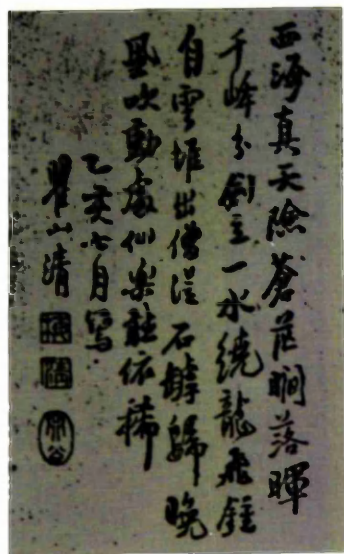 西海真天險蒼茫瞯落暉
千峰分劍立一水繞龍飛鐘
自雲堆出僧從石罅歸晚
風吹動處仙樂聽依稀
乙亥七月寫
瞿山清